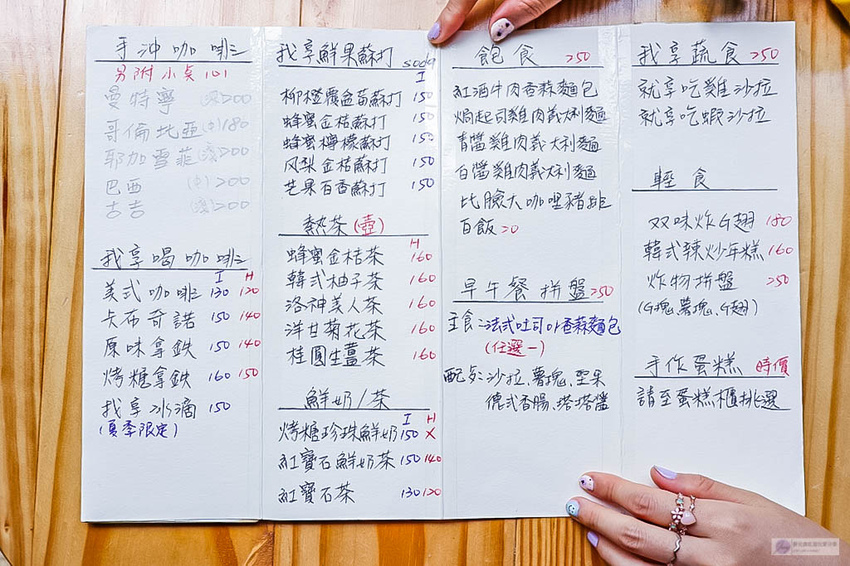 手沖咖啡
另附小桌101
曼特寧 200
哥倫比亞 180
耶加雪菲 200
巴西 200
古吉 200
我享喝咖啡
I H
美式咖啡 130 120
卡布奇諾 150 140
原味拿鐵 150 140
烤糖拿鐵 160 150
我享冰滴 150
(夏季限定)
我享鮮果蘇打 soda
I
柳橙覆盆莓蘇打 150
蜂蜜金桔蘇打 150
蜂蜜檸檬蘇打 150
风梨金桔蘇打 150
芒果百香蘇打 150
熱茶(壺)
H
蜂蜜金桔茶 160
韓式柚子茶 160
洛神美人茶 160
洋甘菊花茶 160
桂圓生薑茶 160
鮮奶/茶
I H
烤糖珍珠鮮奶 150 X
紅寶石鮮奶茶 150 140
紅寶石茶 130 120
飽食 250
紅酒牛肉香蒜麵包
焗起司雞肉義大利麵
青醬雞肉義大利麵
白醬雞肉義大利麵
比臉大咖哩豬排
白飯 20
早午餐拼盤 250
主食:法式吐司or香蒜麵包
(任選一)
配点:沙拉、薯塊、坚果
德式香腸、塔塔醬
我享蔬食 250
就享吃雞沙拉
就享吃蝦沙拉
輕食
双味炸G翅 180
韓式辣炒年糕 160
炸物拼盤 250
(G塊、薯塊、G翅)
手作蛋糕 時價
請至蛋糕櫃挑選